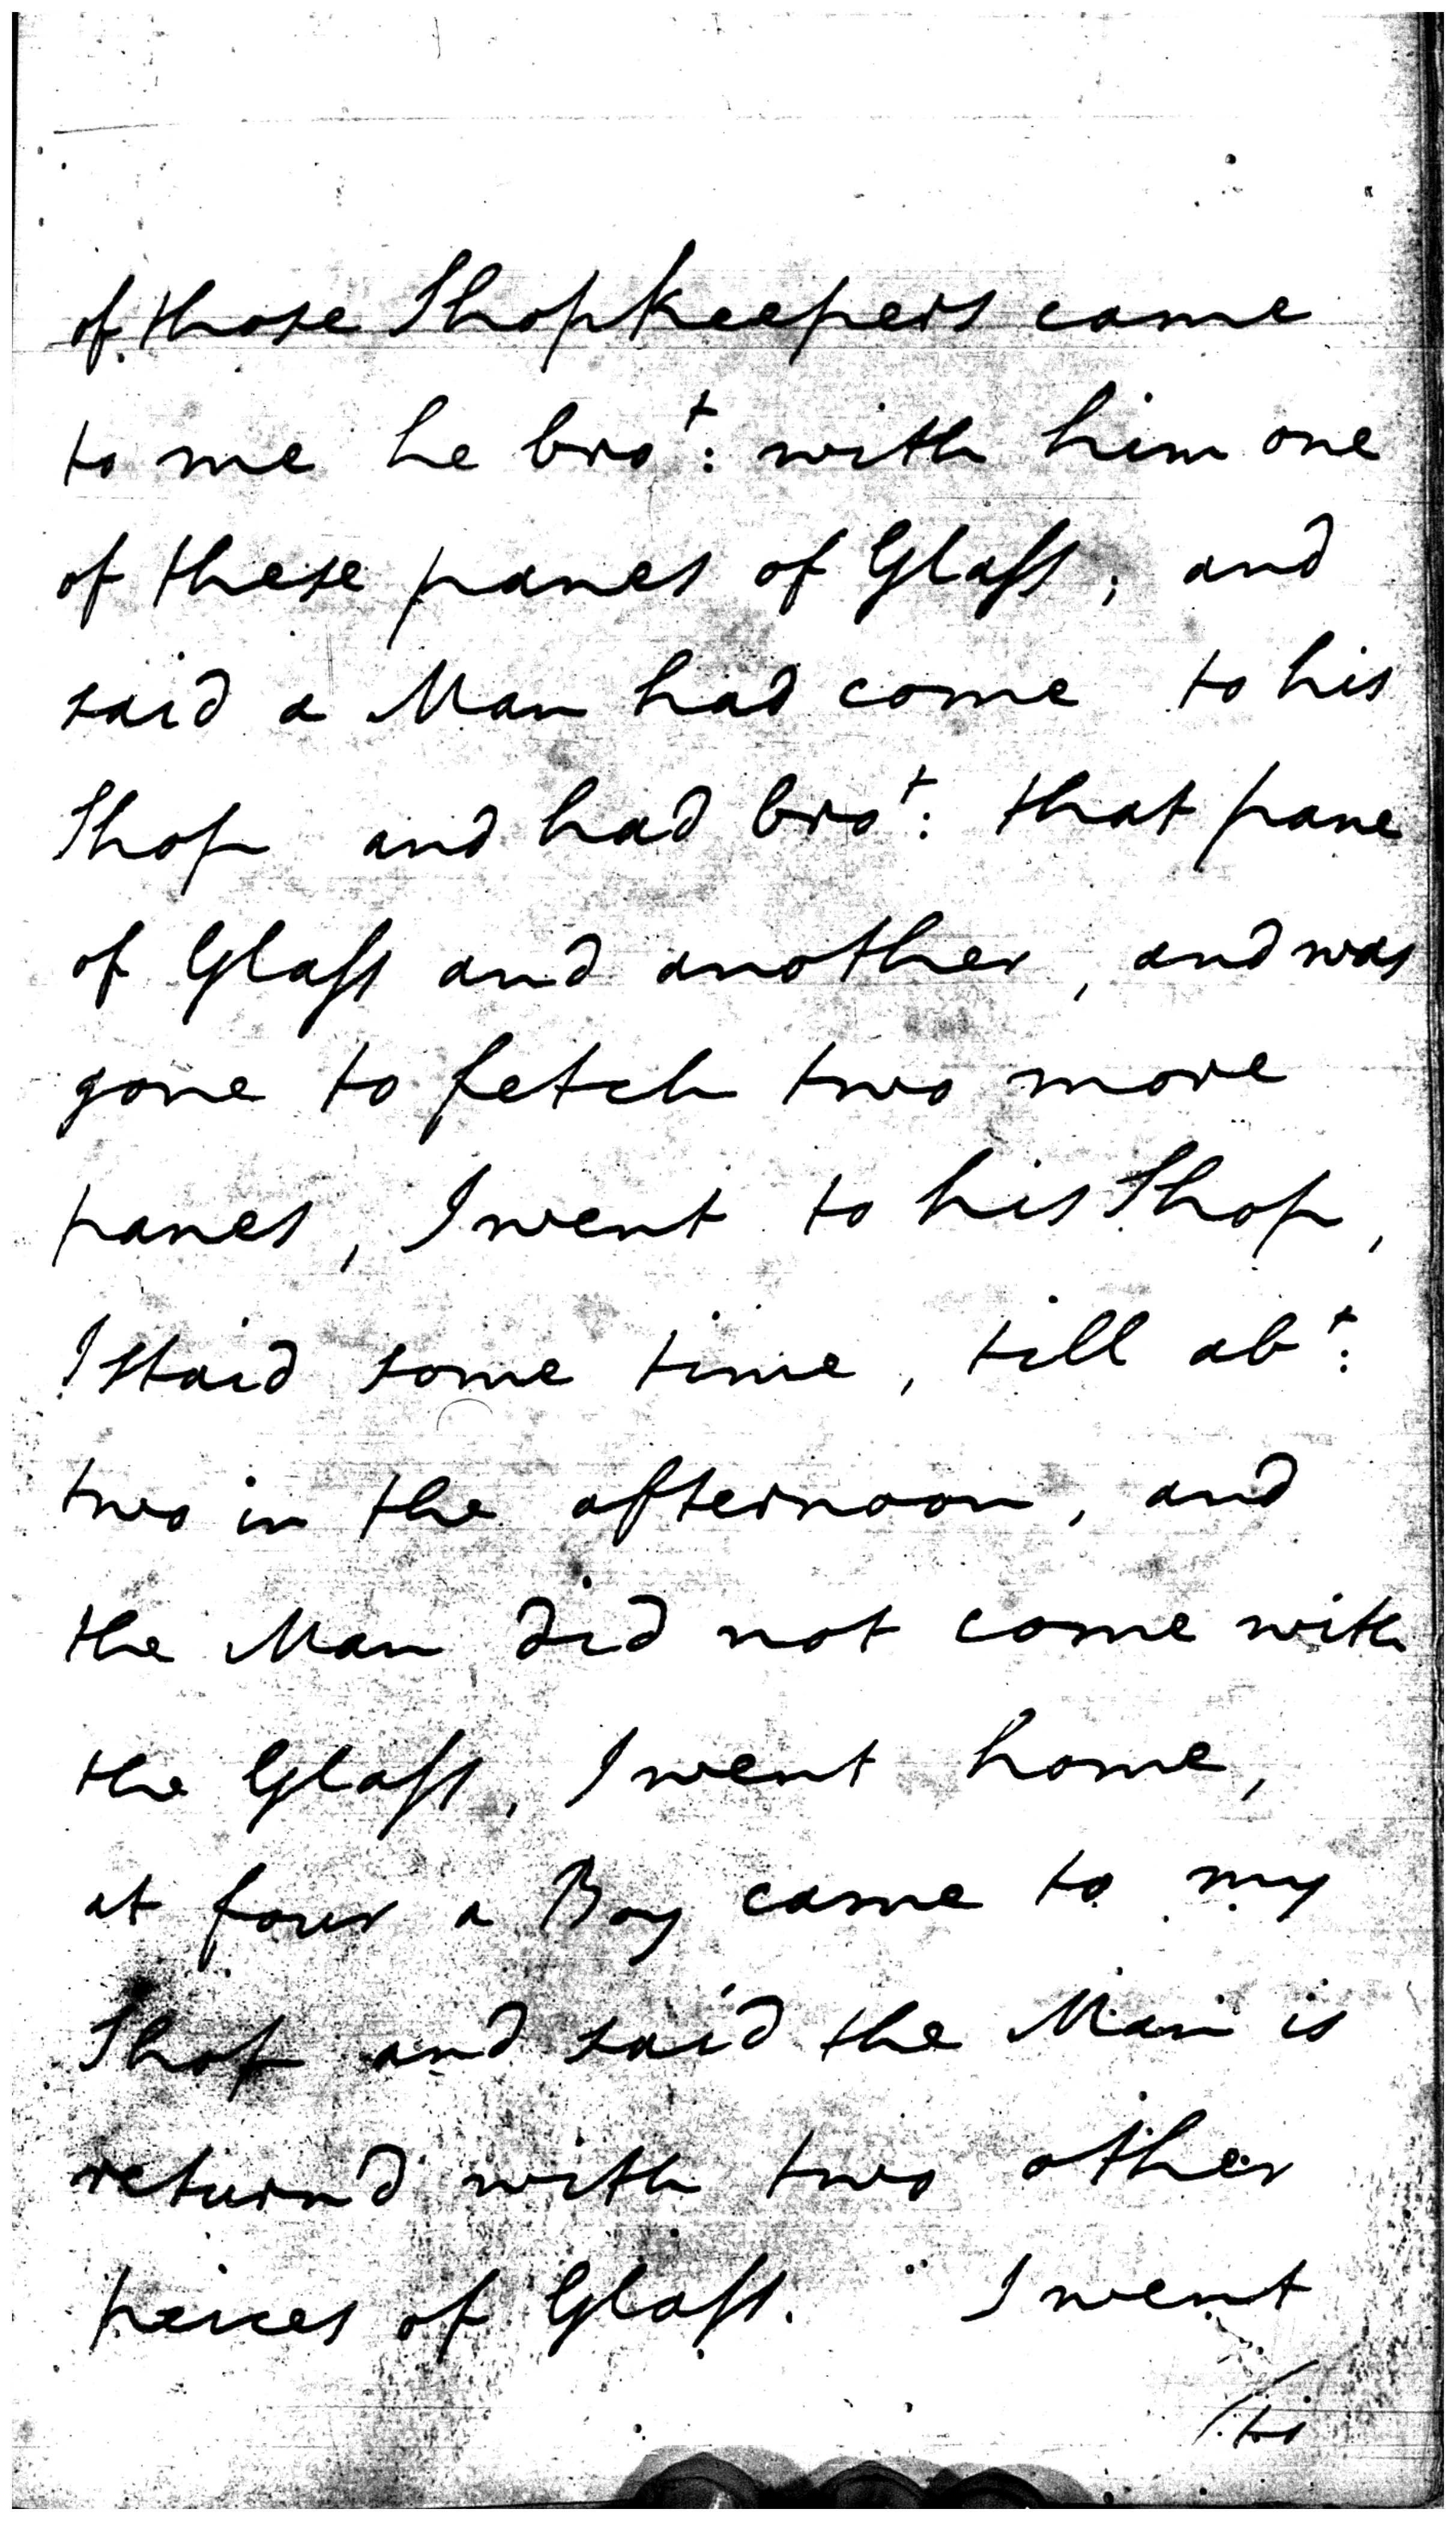 of those Shopkeepers came
to me he bro^t: with him one
of these panes of Glass; and
said a Man had come to his
Shop and had bro^t: that pane
of Glass and another, and was
gone to fetch two more
panes, I went to his Shop,
I staid some time, till ab^t:
two in the afternoon, and
the Man did not come with
the Glass, I went home,
at four a Boy came to my
Shop and said the Man is
returnd with two other
peices of Glass. I went
/to